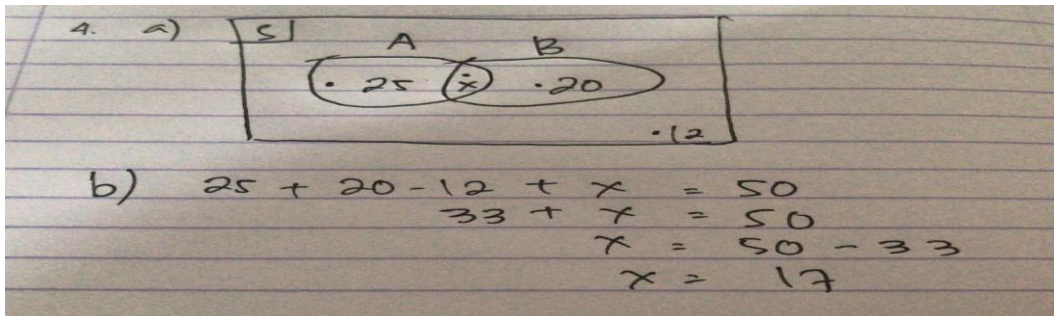 4. a) S
A B
. 25 ẋ . 20
. 12
b) 25 + 20 - 12 + x = 50
33 + x = 50
x = 50 - 33
x = 17